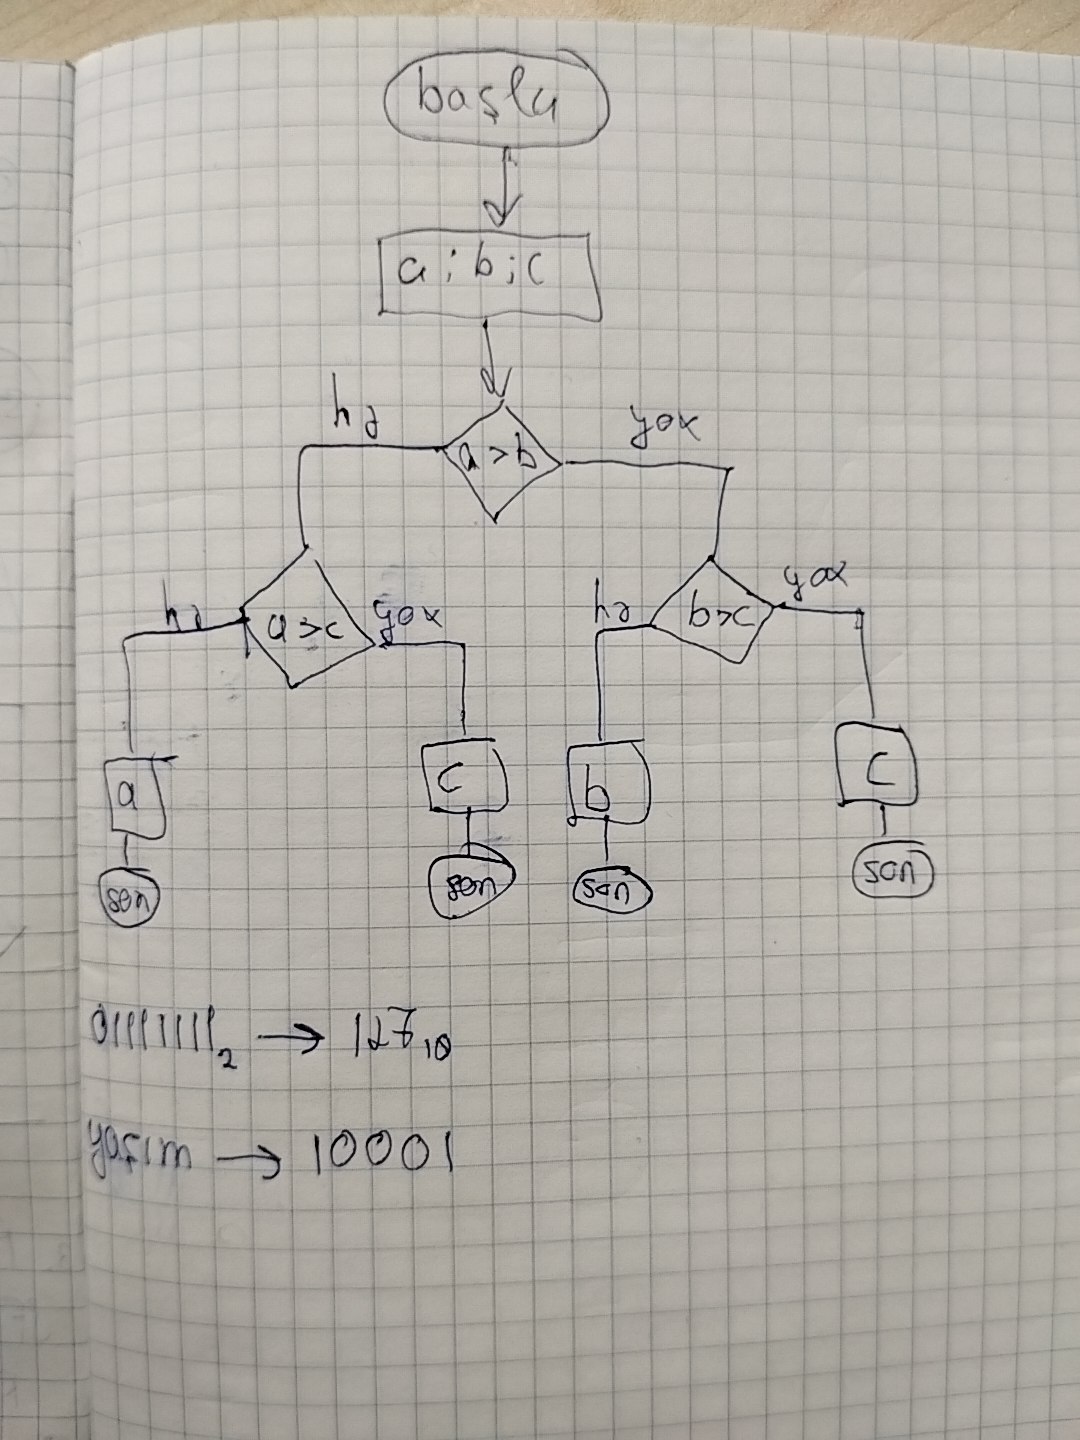 başla
a ; b ; c
hə
a > b
yox
hə
a > c
yox
hə
b > c
yox
a
c
b
c
son
son
son
son
01111111₂ → 127₁₀
yaşım → 10001